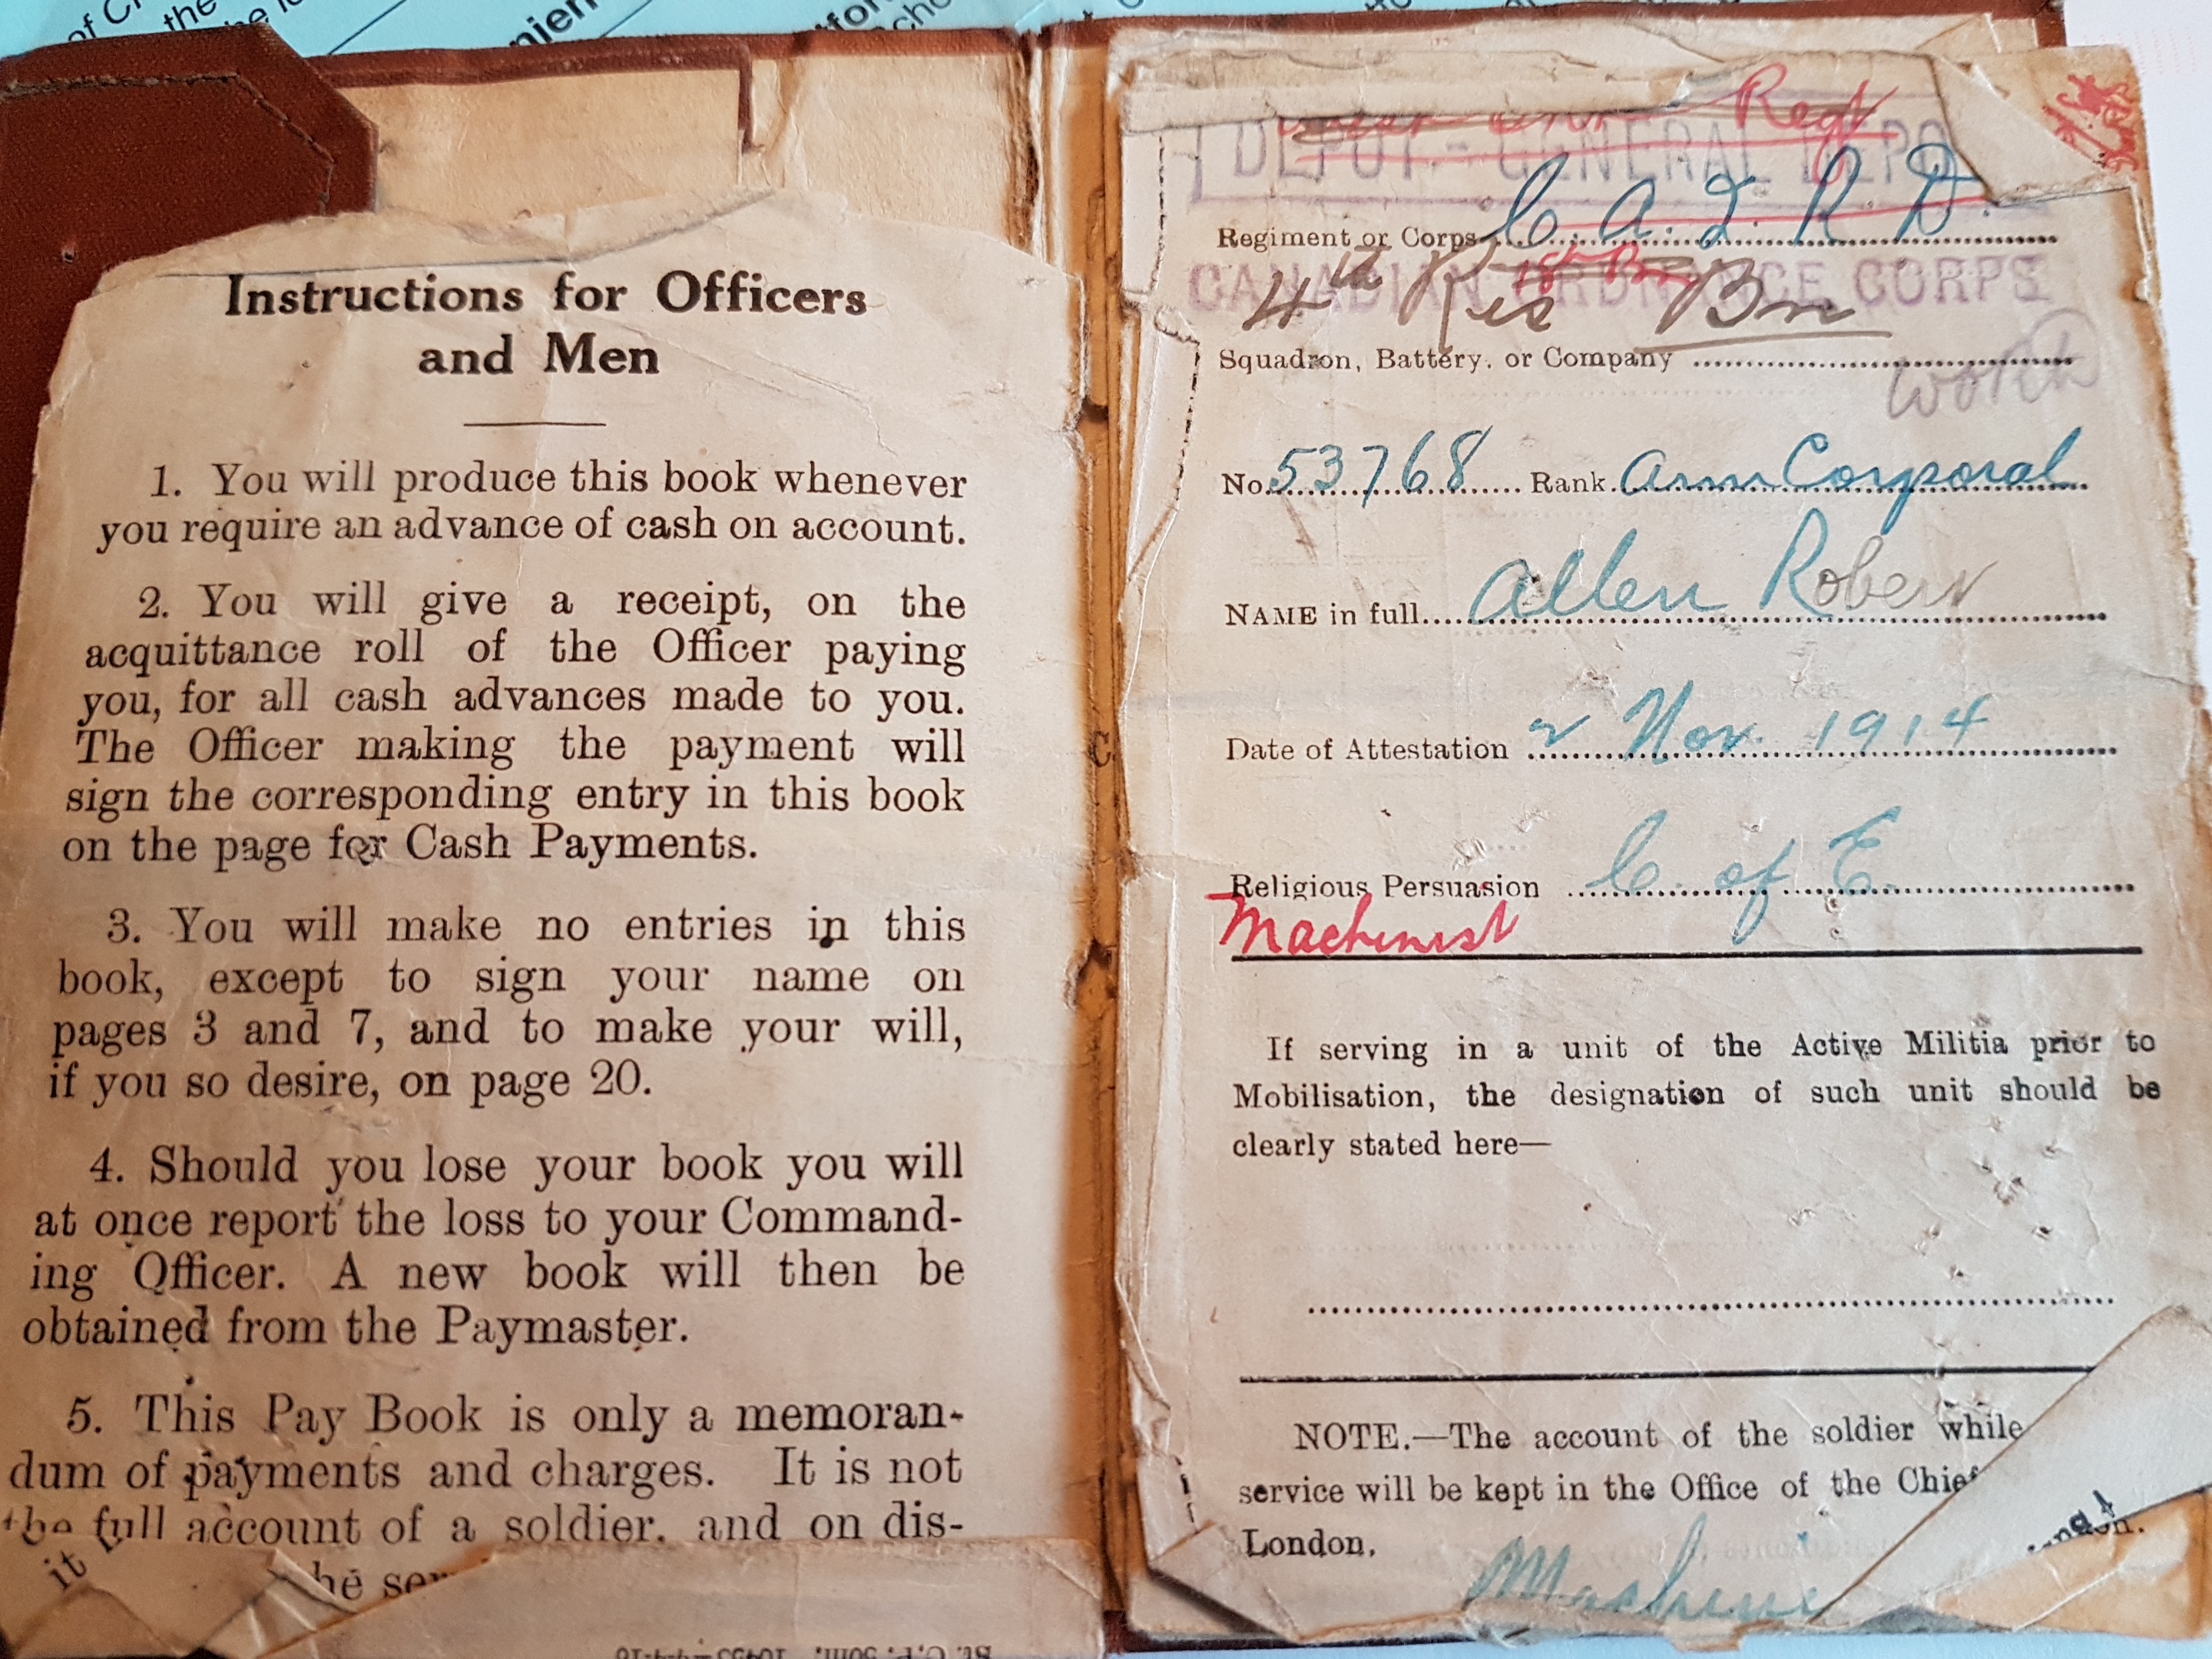 Instructions for Officers
and Men
1. You will produce this book whenever
you require an advance of cash on account.
2. You will give a receipt, on the
acquittance roll of the Officer paying
you, for all cash advances made to you.
The Officer making the payment will
sign the corresponding entry in this book
on the page for Cash Payments.
3. You will make no entries in this
book, except to sign your name on
pages 3 and 7, and to make your will,
if you so desire, on page 20.
4. Should you lose your book you will
at once report the loss to your Command-
ing Officer. A new book will then be
obtained from the Paymaster.
5. This Pay Book is only a memoran-
dum of payments and charges. It is not
the full account of a soldier, and on dis-
it
Regt
DEPOT - GENERAL DEPO
Regiment or Corps C. A. D.
CANADIAN ORDNANCE CORPS
4th Res Bn
18th Bn
Squadron, Battery, or Company
No. 53768 Rank Arm Corporal
NAME in full Allen Robert
Date of Attestation 2 Nov. 1914
Religious Persuasion C. of E.
Machinist
If serving in a unit of the Active Militia prior to
Mobilisation, the designation of such unit should be
clearly stated here—
NOTE.—The account of the soldier while
service will be kept in the Office of the Chief
London.
Machini